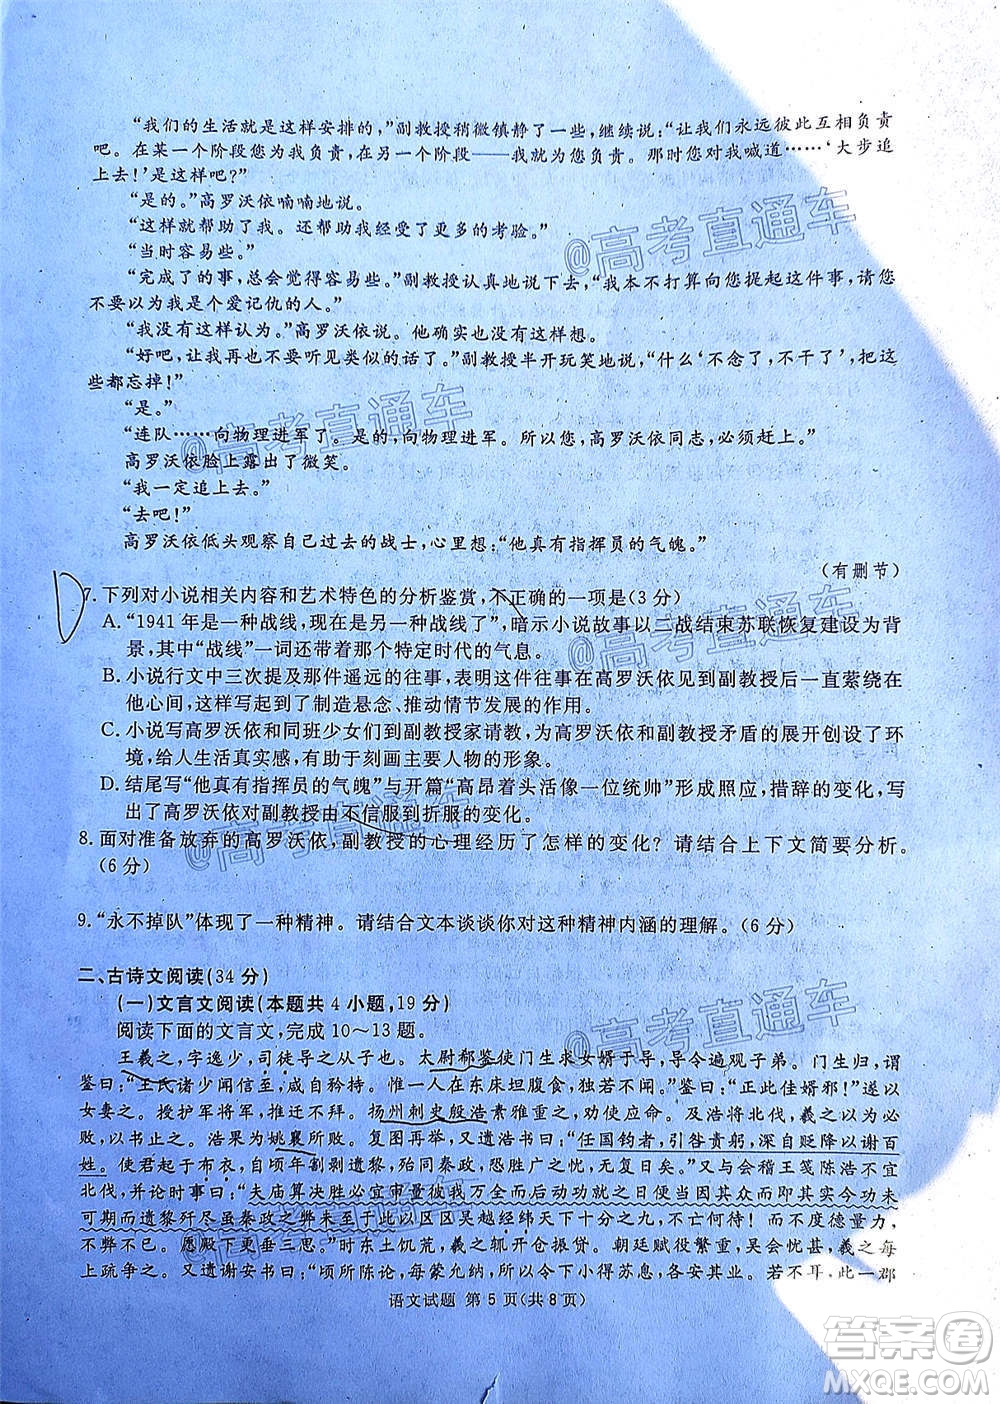 “我们的生活就是这样安排的,”副教授稍微镇静了一些,继续说:“让我们永远彼此互相负责
吧。在某一个阶段您为我负责,在另一个阶段——我就为您负责。那时您对我喊道……‘大步追
上去!’是这样吧?”
“是的。”高罗沃依喃喃地说。
“这样就帮助了我。还帮助我经受了更多的考验。”
“当时容易些。”
“完成了的事,总会觉得容易些。”副教授认真地说,“我本不打算向您提起这件事,请您
不要以为我是个爱记仇的人。”
“我没有这样认为。”高罗沃依说。他确实也没有这样想。
“好吧,让我再也不要听见类似的话了。”副教授半开玩笑地说,“什么‘不念了,不干了’,把这
些都忘掉!”
“是。”
“连队……向物理进军了。是的,向物理进军。所以您,高罗沃依同志,必须赶上。”
高罗沃依脸上露出了微笑。
“我一定追上去。”
“去吧!”
高罗沃依低头观察自己过去的战士,心里想:“他真有指挥员的气魄。”
(有删节)
7. 下列对小说相关内容和艺术特色的分析鉴赏,不正确的一项是(3 分)
A. “1941 年是一种战线,现在是另一种战线了”,暗示小说故事以二战结束苏联恢复建设为背
景,其中“战线”一词还带着那个特定时代的气息。
B. 小说行文中三次提及那件遥远的往事,表明高罗沃依见到副教授后往事一直萦绕在
他心间,这样写起到了制造悬念、推动情节发展的作用。
C. 小说写高罗沃依和同班少女们到副教授家请教,为高罗沃依与副教授矛盾的展开做了环
境,给人生活真实感,有助于刻画主要人物的形象。
D. 结尾写“他真有指挥员的气魄”与开篇“高昂着头活像一位统帅”形成照应,措辞的变化,写
出了高罗沃依对副教授由不信服到折服的变化。
8. 面对准备放弃的高罗沃依,副教授的心理经历了怎样的变化?请结合上下文简要分析。
(6 分)
9. “永不掉队”体现了一种精神。请结合文本谈谈你对这种精神内涵的理解。(6 分)
二、古诗文阅读(34 分)
(一)文言文阅读(本题共 4 小题,19 分)
阅读下面的文言文,完成10～13题。
王羲之,字逸少,司徒导之从子也。太尉郗鉴使门生求女婿于导,导令遍观子弟。门生归,谓
鉴曰:“王氏诸少闻信至,咸自矜持。惟一人在东床坦腹食,若不闻。”鉴曰:“正此佳婿邪!”遂以
女妻之。授护军将军,征让不拜。扬州刺史殷浩素雅重之,劝使应命。及浩将北伐,羲之以为必
败,以书止之。浩果为姚襄所败。复图再举,又遗浩书曰:“任国钧者,引咎责躬,深自贬降以谢百
姓。使君起于布衣,自顷年割剥遗黎,刑徒竟路,殆同秦政,恐胜广之忧,无复日矣。”又与会稽王笺陈浩不宜
北伐,并论时事曰:“夫庙算决胜必宜审量彼我万全而后动今功未
可期而遗黎歼尽虽秦政之弊未至于此以区区吴越经纬天下十分之九,不亡何待!而不度德量力,
不弊不已。愿殿下更垂三思。”时东土饥荒,羲之辄开仓振贷。朝廷赋役繁重,吴会忧甚,羲之每
上疏争之。又遗谢安书曰:“顷所陈论,每蒙允纳,所以令下小得苏息,各安其业。若不耳,此一郡
语文试题 第 5 页(共 8 页)
@高考直通车
@高考直通车
@高考直通车
@高考直通车
@高考直通车
@高考直通车
@高考直通车
答案卷
MXQE.COM